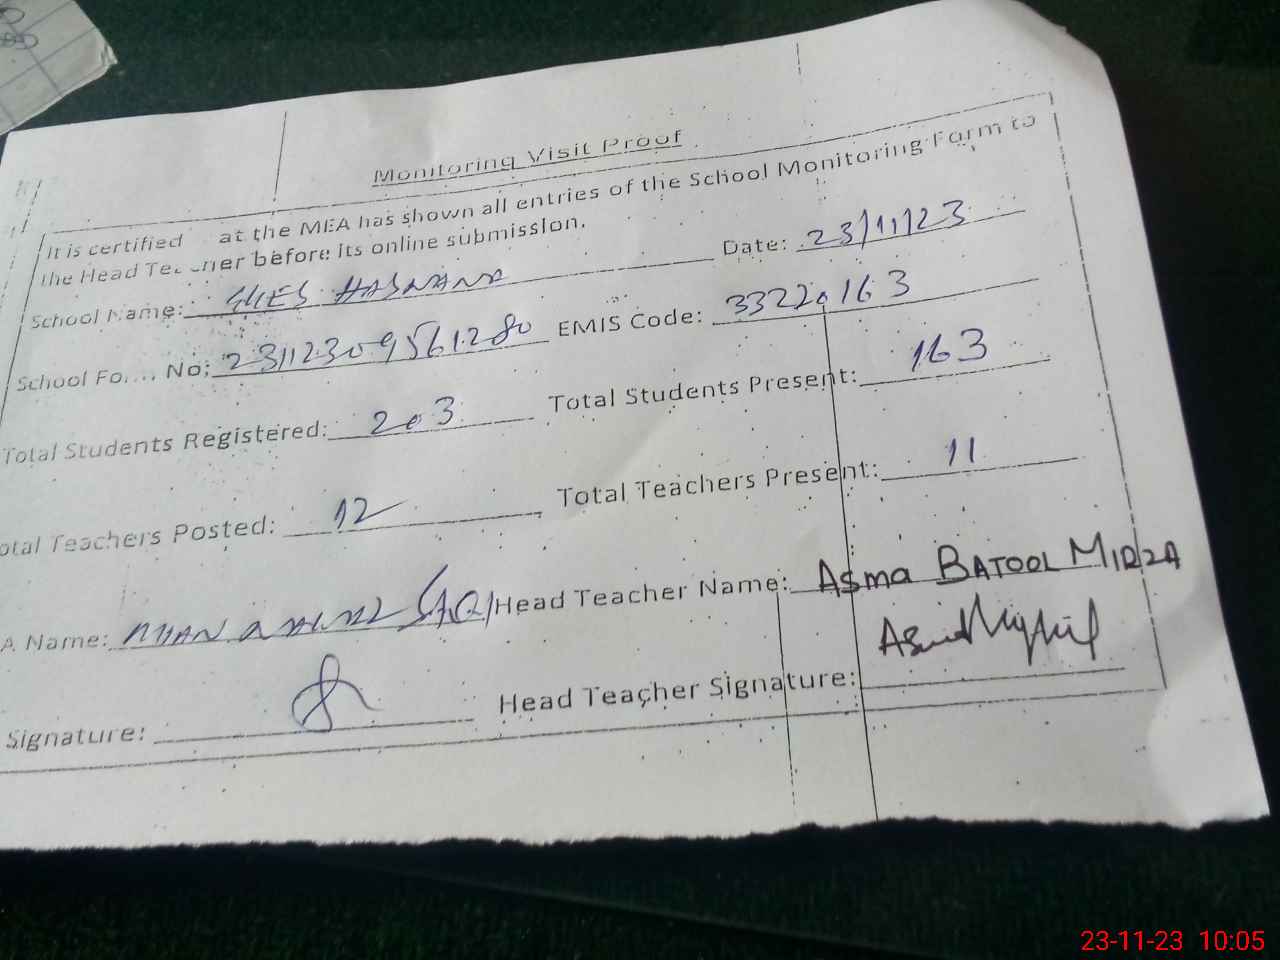 Monitoring Visit Proof
It is certified at the MEA has shown all entries of the School Monitoring Form to
the Head Teacher before its online submission.
School Name: GGES HASNANA Date: 23/11/23
School Fo.... No: 23112309561280 EMIS Code: 33220163
Total Students Registered: 203 Total Students Present: 163
otal Teachers Posted: 12 Total Teachers Present: 11
A Name: MIAN SAQI Head Teacher Name: ASMA BATOOL MIRZA
Signature: Head Teacher Signature:
23-11-23 10:05